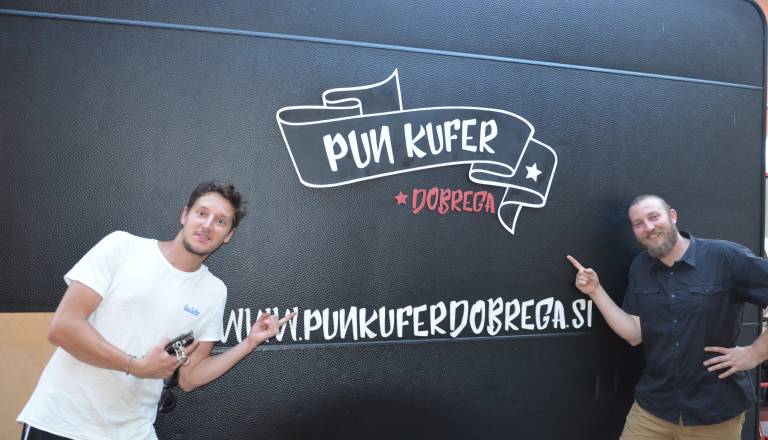 PUN KUFER
DOBREGA
WWW.PUNKUFERDOBREGA.SI